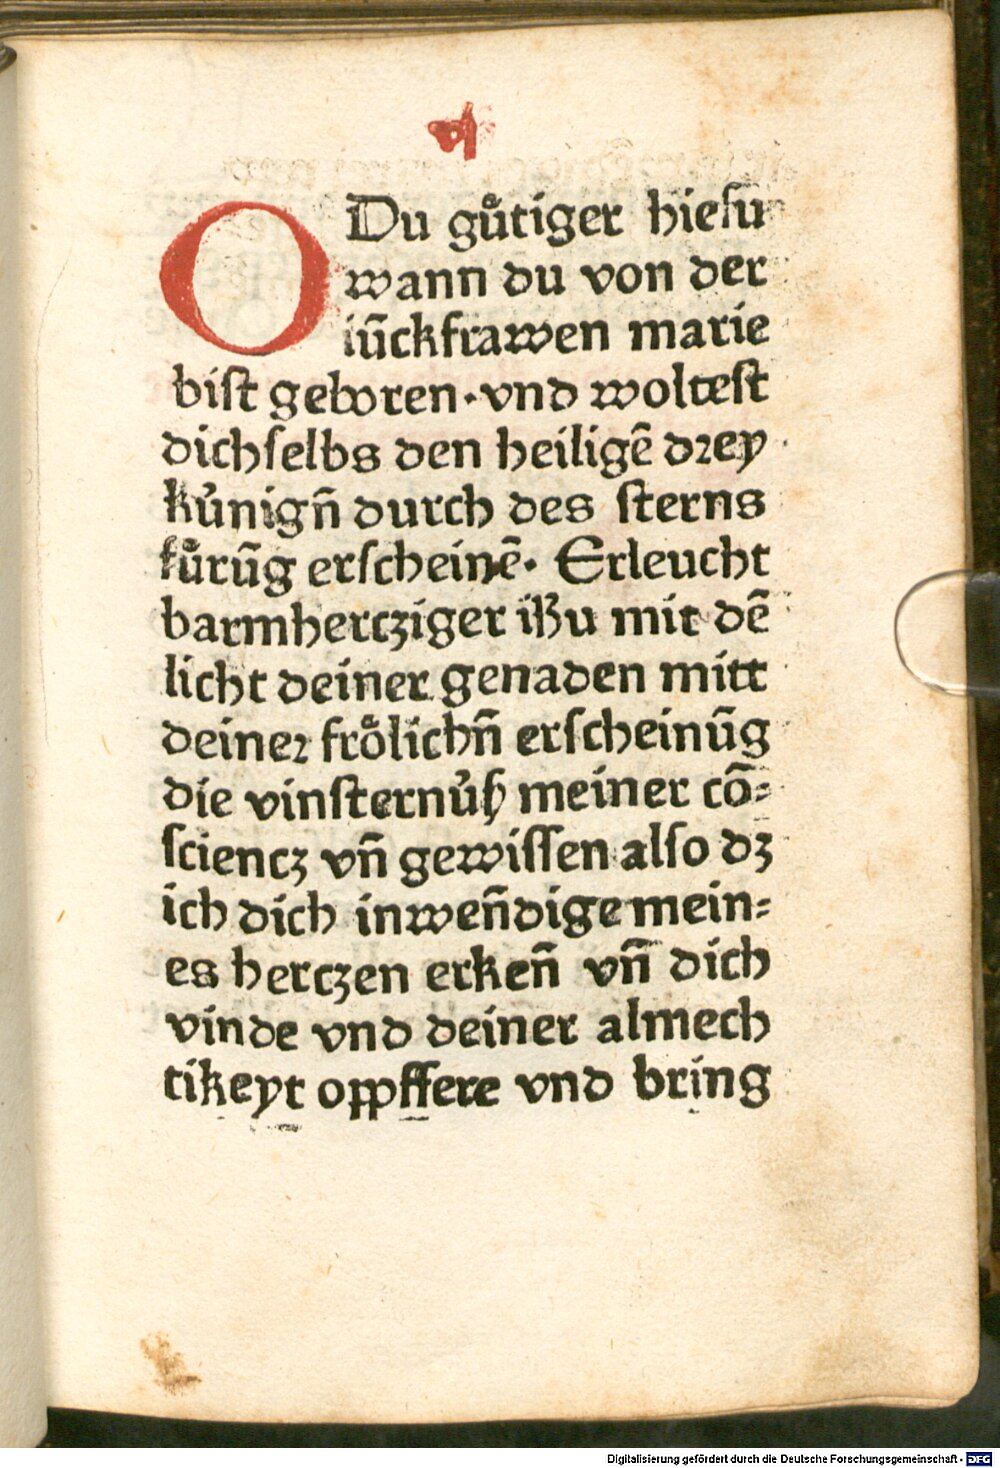 O Du gu̍tiger hieſu
wann du von der
iūckfrawen marie
bist geboren · vnd woltest
dichſelbs den heiligē dꝛey
ku̍nign̄ durch des sterns
fu̍rūg erſcheinē · Erleucht
barmhercziger ihu mit dē
licht deiner genaden mitt
deineꝛ froͤlichn̄ erſcheinūg
die vinsternu̍ß meiner cō⸗
ſciencz vn̄ gewiſſen alſo dz
ich dich inwen̄dige mein⸗
es herczen erken̄ vn̄ dich
vinde vnd deiner almech
tikeyt oppffere vnd bring
Digitalisierung gefördert durch die Deutsche Forschungsgemeinschaft - DFG